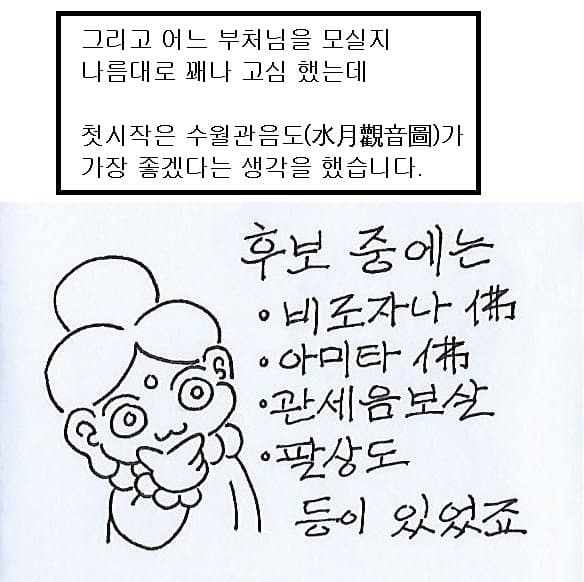 그리고 어느 부처님을 모실지
나름대로 꽤나 고심 했는데
첫시작은 수월관음도(水月觀音圖)가
가장 좋겠다는 생각을 했습니다.
후보 중에는
• 비로자나 佛
• 아미타 佛
• 관세음보살
• 팔상도
등이 있었죠